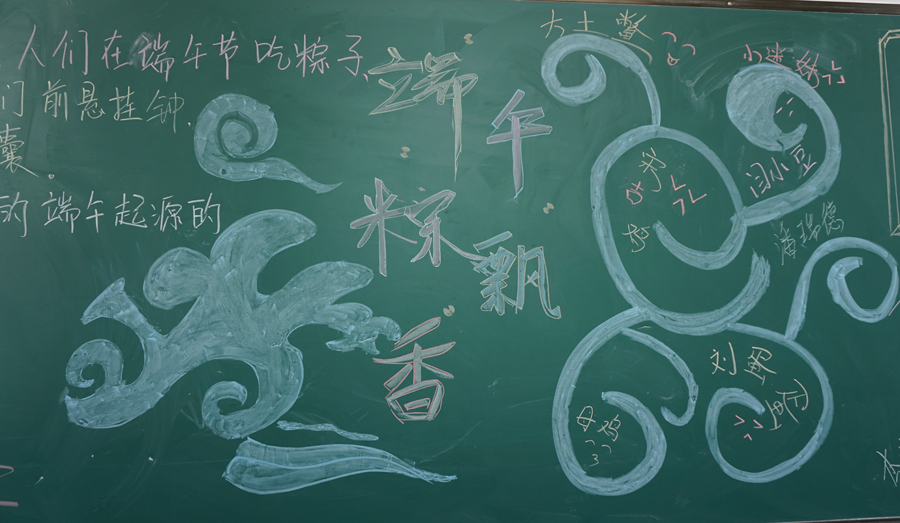 人们在端午节吃粽子,
们前悬挂钟,
囊。
的端午起源的
端午
粽飘
香
大土鳖
小迷妹
闫小豆
潘瑞德
刘蛋
母鸡